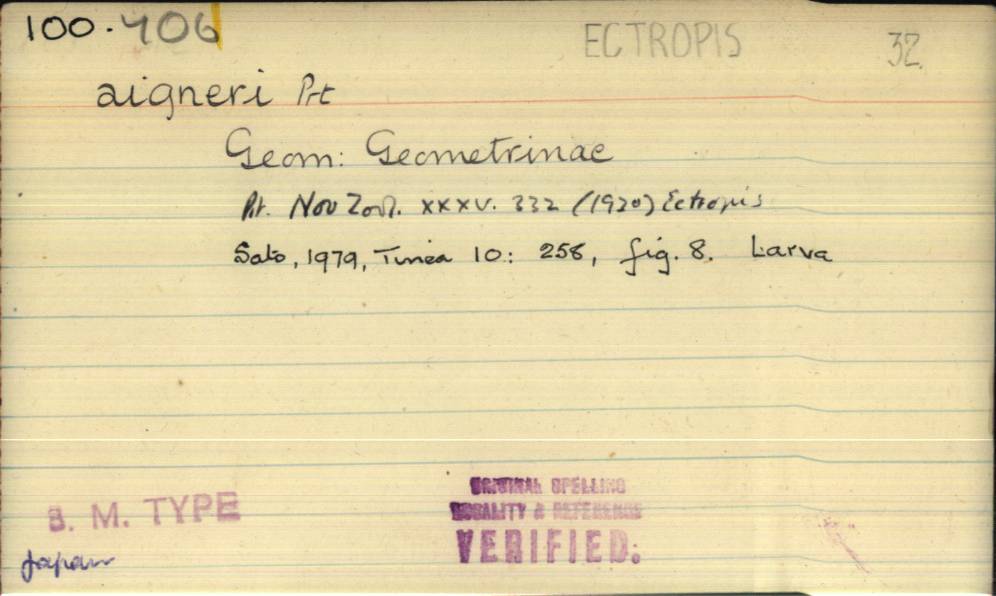 100.406
ECTROPIS 32.
aigneri Prt
Geom: Geometrinae
Prt. Nov Zool. XXXV. 332 (1930) Ectropis
Sato, 1979, Tinea 10: 258, fig. 8. Larva
B. M. TYPE
Japan
ORIGINAL SPELLING
LOCALITY & REFERENCE
VERIFIED.